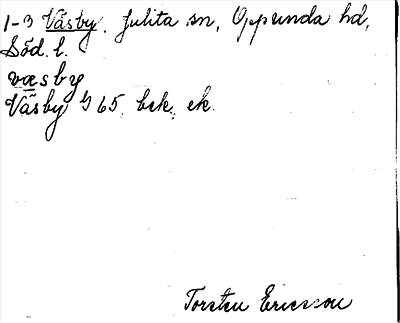 1-3 Väsby. Julita sn, Oppunda hd,
Söd. l.
væsby
Väsby G 65, bek. ek.
Torsten Ericsson